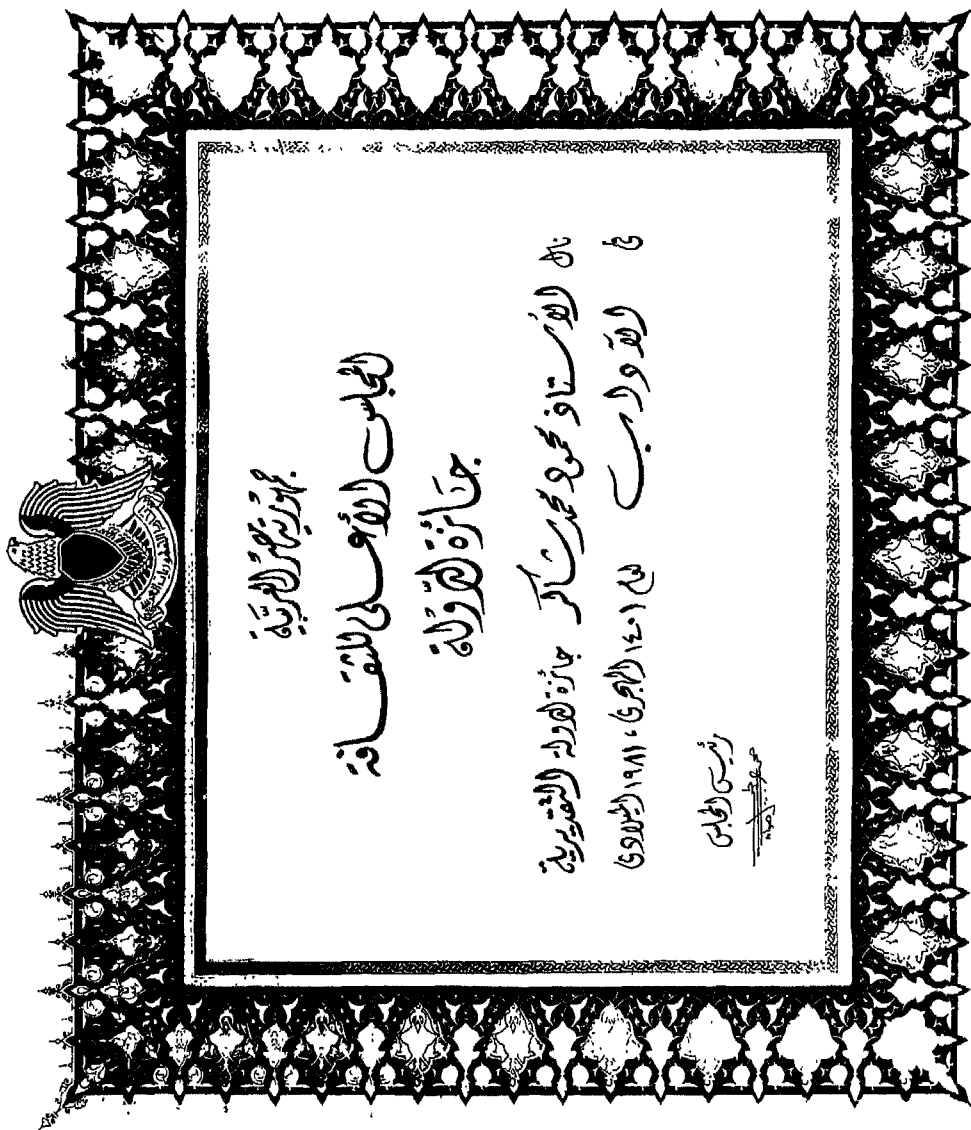 جمهورية مصر العربية
المجلس الأعلى للثقافة
جائزة الدولة
نال الأستاذ محمود محمد شاكر جائزة الدولة التقديرية
في الآداب لعام ١٤٠١ الهجري، ١٩٨١ الميلادي
رئيس المجلس